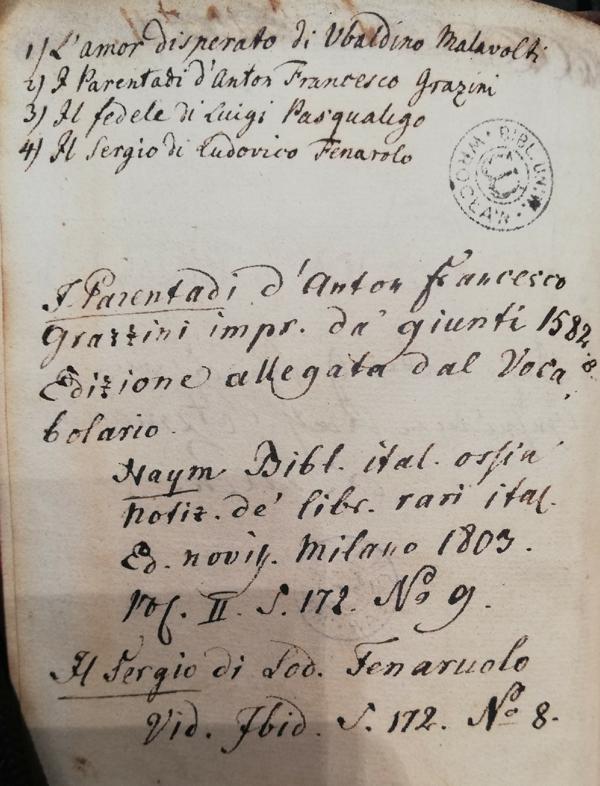 1) L'amor disperato di Ubaldino Malavolti
2) I Parentadi d'Anton Francesco Grazini
3) Il fedele di Luigi Pasqualigo
4) Il Sergio di Ludovico Fenarolo
BIBL. UNIV.
I Parentadi d'Anton Francesco
Grazzini impr. da' giunti 1582.
8.
Edizione allegata dal Voca,
bolario.
Haym Bibl. ital. ossia
notiz. de' libr. rari ital.
Ed. noviss. Milano 1803.
Vol. II S. 172. No 9.
Il Sergio di Lod. Fenaruolo
Vid. Ibid. S. 172. No 8.